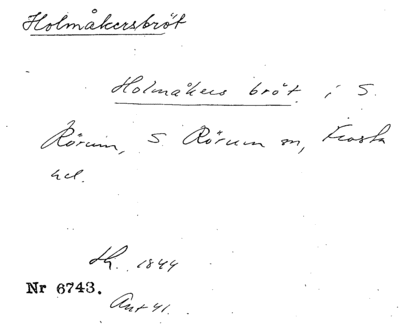 Holmåkersbröt
Holmåkers bröt. i S.
Rörum, S. Rörum sn, Frosta
hd.
Lh. 1844
Nr 6743.
Ant 41.